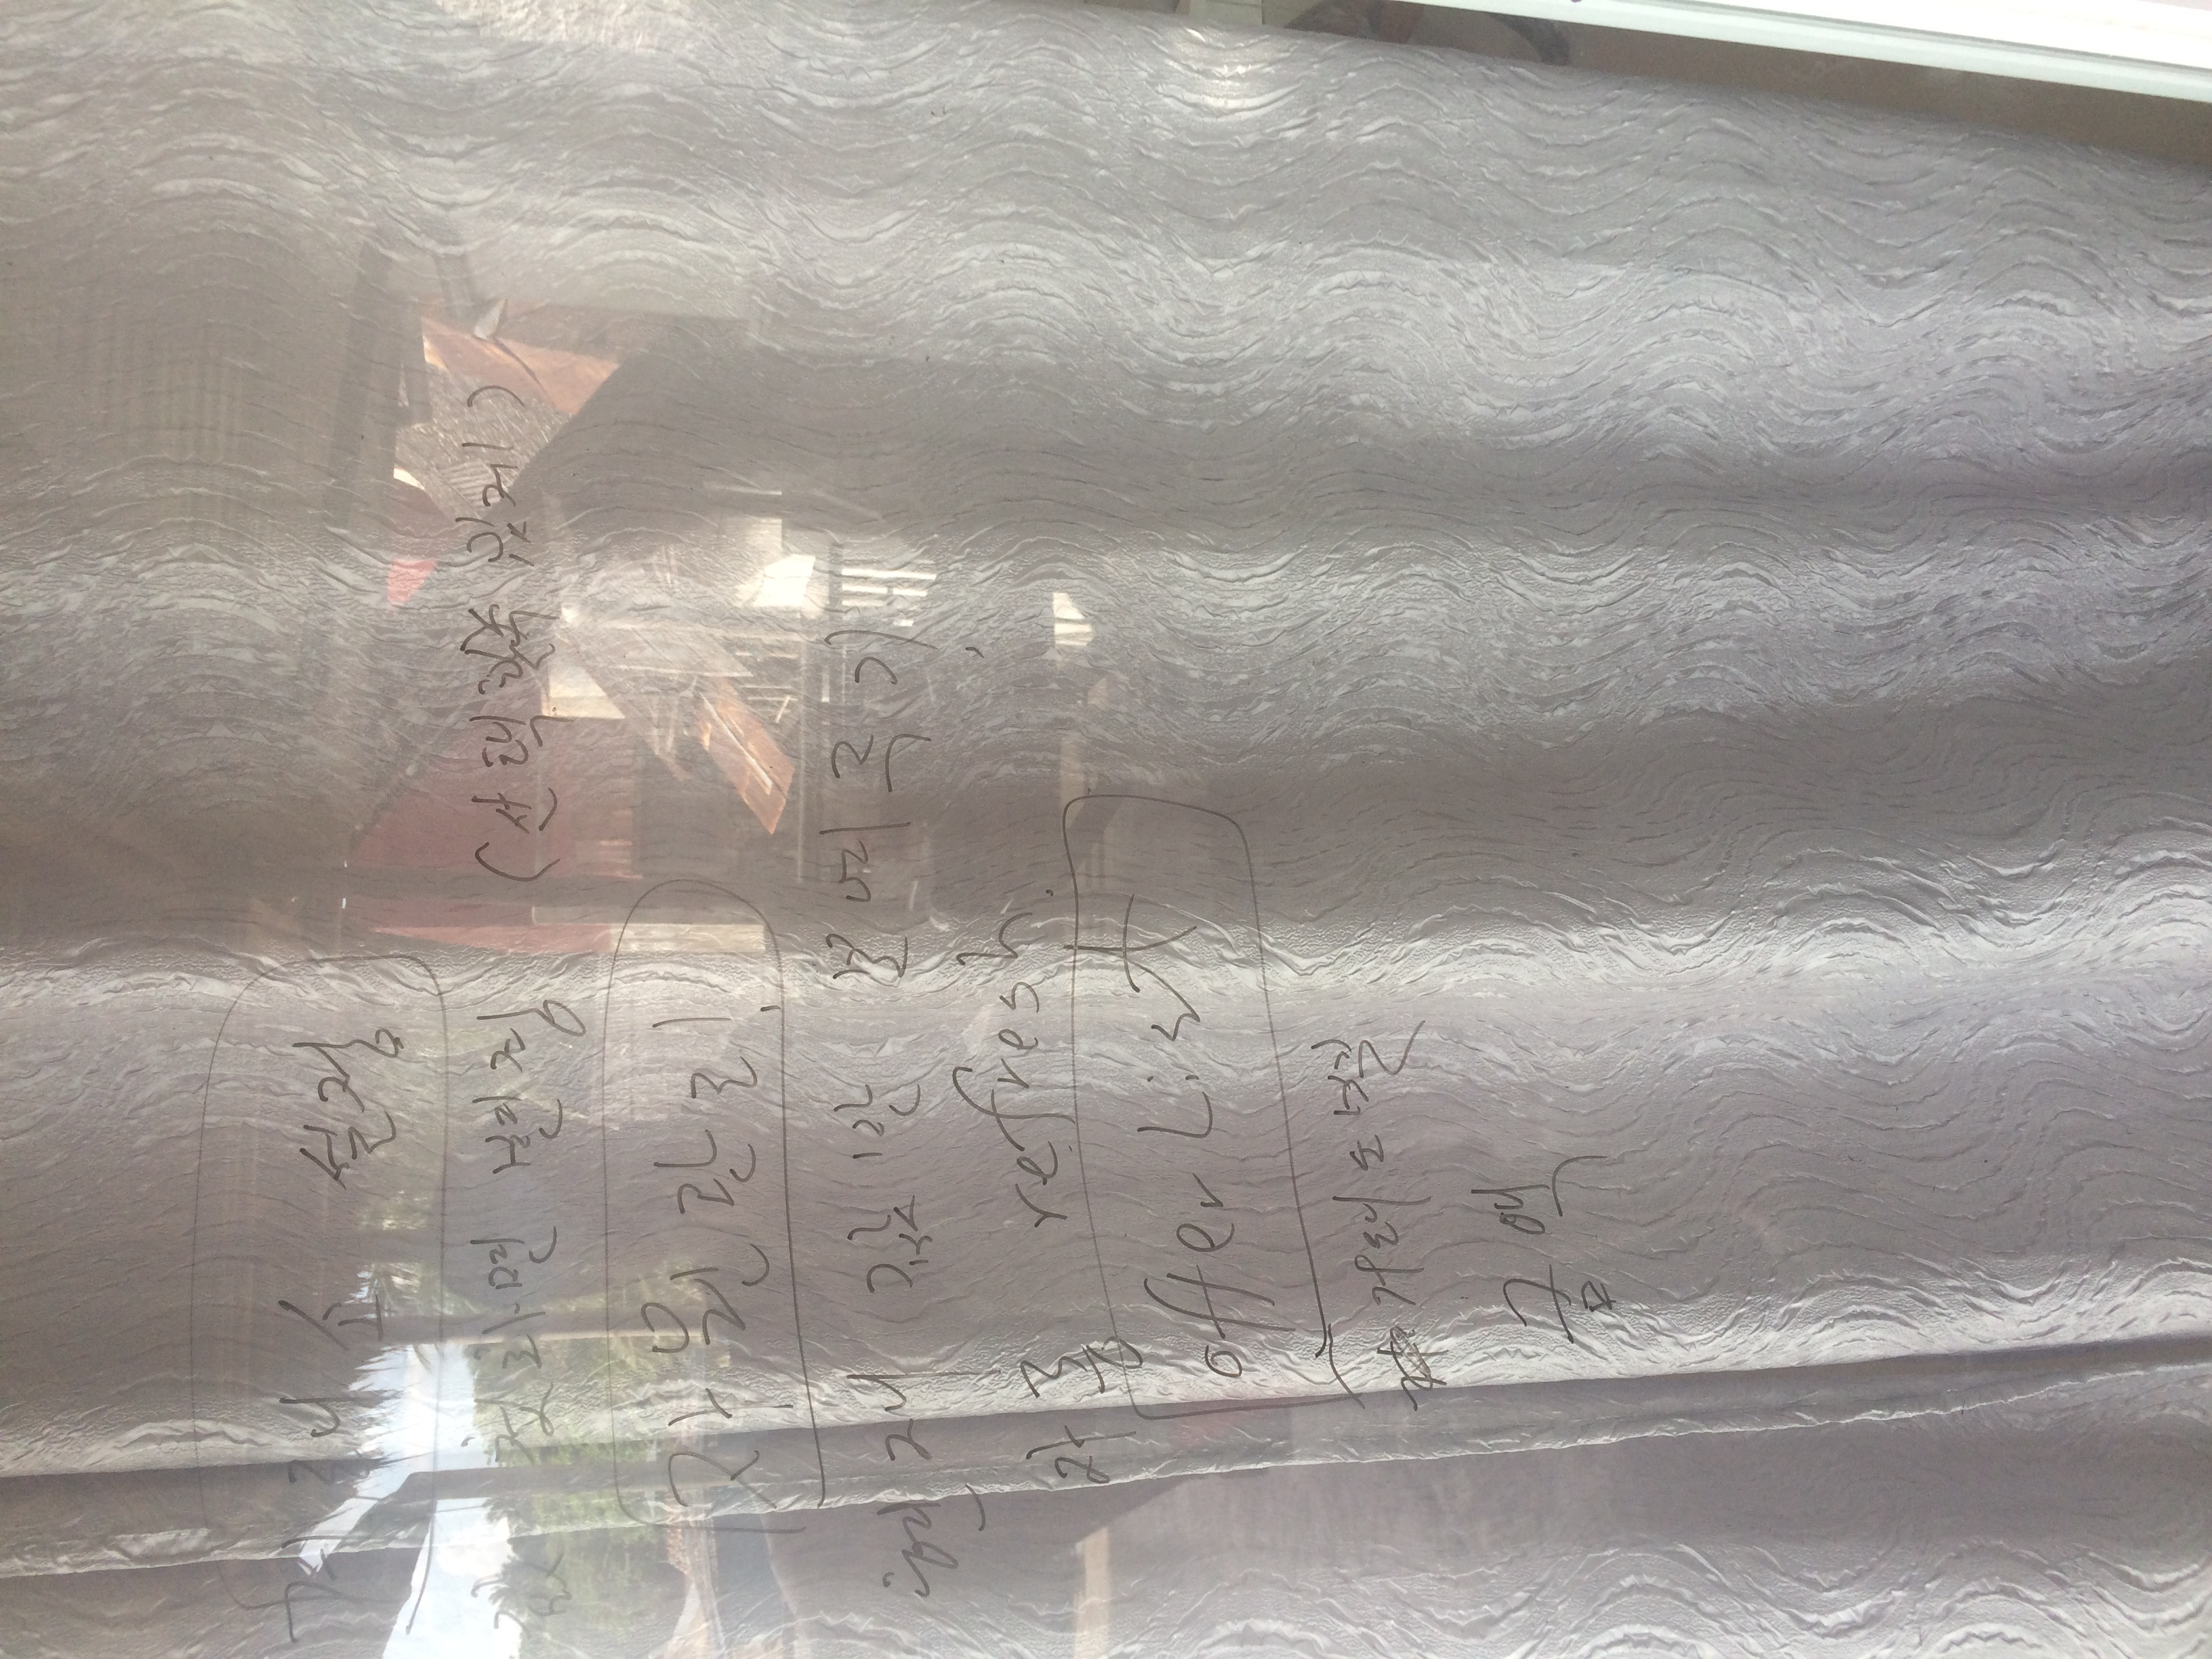 거래소 설정
값 첫화면 변경 (선택할수 있게)
자원관리
현재 값만 보여주기
자동 refresh.
offer List
거래소별
금액